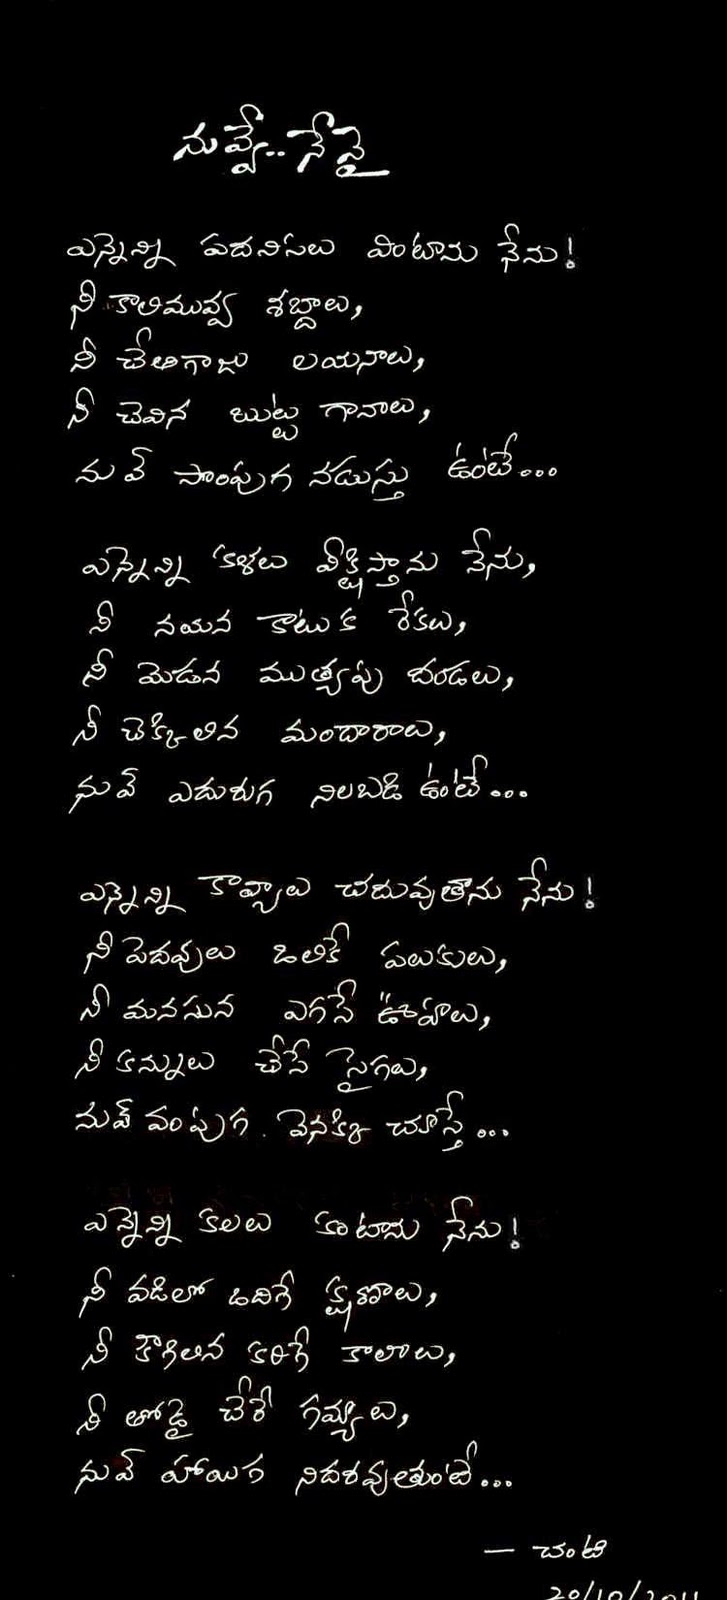 నువ్వే.. నేనై
ఎన్నెన్ని పదనిసలు వింటాను నేను!
నీ కాలిమువ్వ శబ్దాలు,
నీ చేతిగాజు లయనాలు,
నీ చెవిన బుట్ట గానాలు,
నువ్ సొంపుగ నడుస్తు ఉంటే...
ఎన్నెన్ని కళలు వీక్షిస్తాను నేను,
నీ నయన కాటుక రేకలు,
నీ మెడన ముత్యపు దండలు,
నీ చెక్కిలిన మందారాలు,
నువ్ ఎదురుగ నిలబడి ఉంటే...
ఎన్నెన్ని కావ్యాలు చదువుతాను నేను!
నీ పెదవులు ఒలికే పలుకులు,
నీ మనసున ఎగసే ఊహలు,
నీ కన్నులు చేసే సైగలు,
నువ్ వంపుగ వెనక్కి చూస్తే...
ఎన్నెన్ని కలలు కంటాను నేను!
నీ వడిలో ఒదిగే క్షణాలు,
నీ కౌగిలిన కరిగే కాలాలు,
నీ తోడై చేరే గమ్యాలు,
నువ్ హాయిగ నిదరవుతుంటే...
– చంటి
20/10/2011